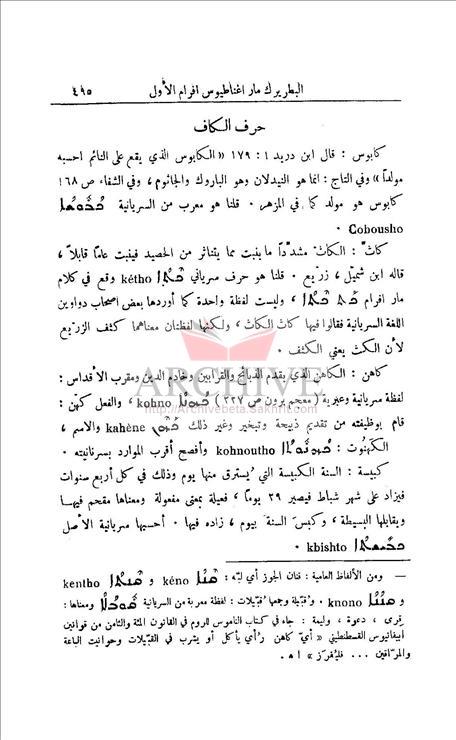 البطريرك مار اغناطيوس افرام الأول ٤٩٥
حرف الكاف
كابوس : قال ابن دريد ١ : ١٧٩ « الكابوس الذي يقع على النائم احسبه
مولداً » وفي التاج : انما هو النيدلان وهو الباروك والجاثوم ، وفي الشفاء ص ١٦٨
كابوس هو مولد كما في المزهر . قلنا هو معرب من السريانية ܟܳܒܽܘܫܳܐ
Cobousho .
كاث : الكاث مشدداً ما ينبت مما يتناثر من الحصيد فينبت عاماً قابلاً ،
قاله ابن شميل ، زريع . قلنا هو حرف سرياني ܟܳܬܳܐ kétho وقع في كلام
مار افرام ، وليست لفظة واحدة كما أوردها بعض اصحاب دواوين
اللغة السريانية فقالوا فيها كاث الكاث ، ولكنها لفظتان معناهما كثف الزريع
لأن الكث يعني الكثف .
كاهن : الكاهن الذي يقدم الذبائح والقرابين وخادم الدين ومقرب الأقداس :
لفظة سريانية وعبرية ( معجم برون ص ٢٢٧ ) ܟܳܗܢܳܐ kohno ، والفعل كهن :
قام بوظيفته من تقديم ذبيحة وتبخير وغير ذلك ܟܰܗܶܢ kahène والاسم ،
الكهنوت : ܟܳܗܢܽܘܬܳܐ kohnoutho وأفصح أقرب الموارد بسريانيته .
كبيسة : السنة الكبيسة التي يُسترق منها يوم وذلك في كل أربع سنوات
فيزاد على شهر شباط فيصير ٢٩ يوماً ، فعيلة بمعنى مفعولة ومعناها مقحم فيها
ويقابلها البسيطة ، وكبس السنة بيوم ، زاده فيها . أحسبها سريانية الأصل
ܟܒܺܝܫܬܳܐ kbishto .
— ومن الألفاظ العامية : قنان الجوز أي لبّه : kéno و kentho
و knono . وقبيلة وجمعها قبيلات : لفظة معربة من السريانية ومعناها :
قرى ، دعوة ، وليمة : جاء في كتاب الناموس للروم في القانون المئة والثامن من قوانين
ابيفانيوس القسطنطيني « أيّ كاهن رُأي يأكل أو يشرب في القبيلات وحوانيت الباعة
والمرّاقين ... فليُفرَز » اه .
ARCHIVE
http://Archivebeta.Sakhrit.com